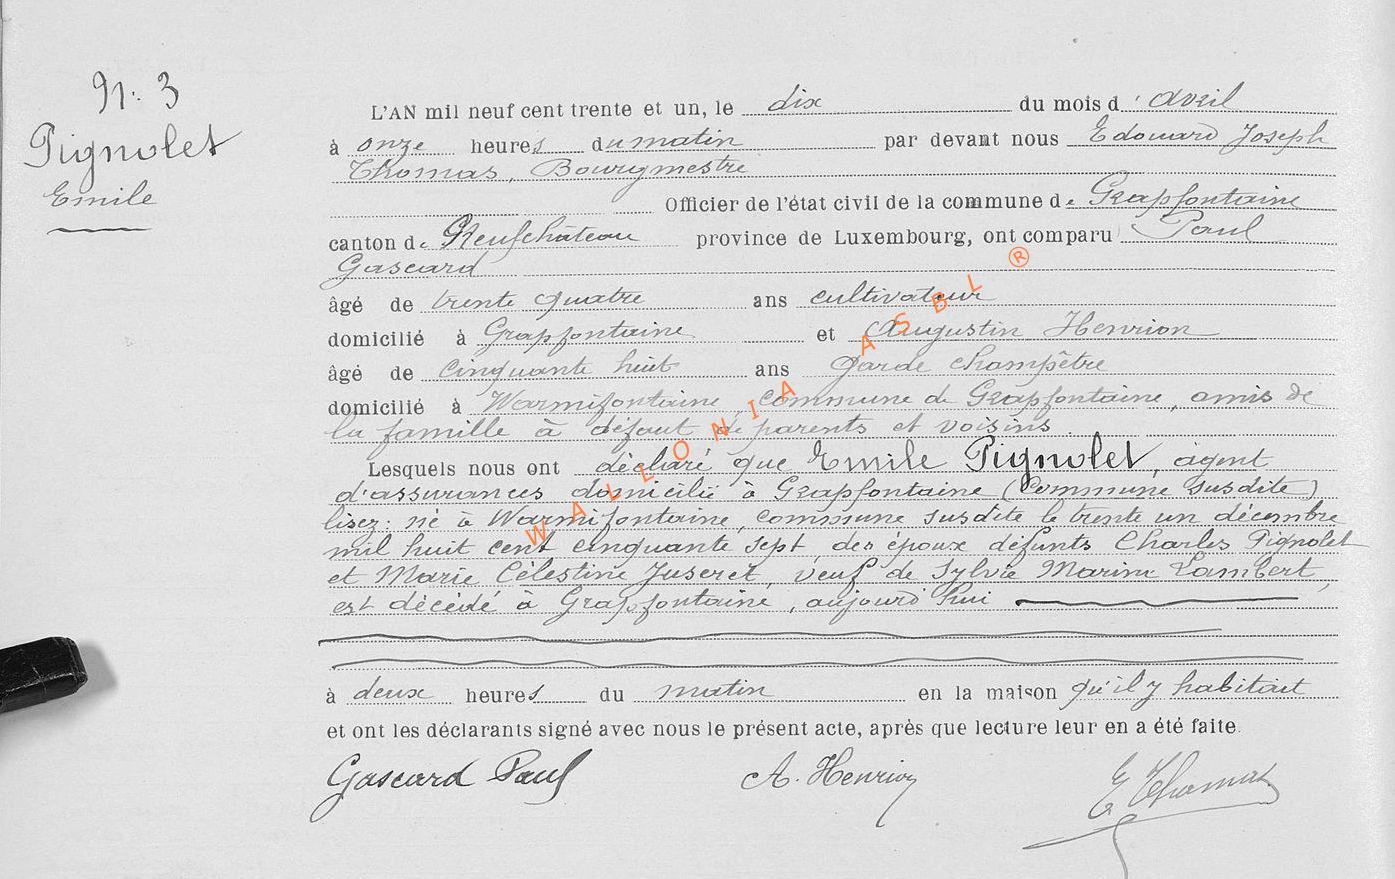 N: 3
Pignolet
Emile
L'AN mil neuf cent trente et un, le dix du mois d'avril
à onze heures du matin par devant nous Edouard Joseph
Thomas, Bourgmestre
Officier de l'état civil de la commune de Grapfontaine
canton de Neufchâteau province de Luxembourg, ont comparu Paul
Gascard
âgé de trente quatre ans cultivateur
domicilié à Grapfontaine et Augustin Henrion
âgé de cinquante huit ans garde champêtre
domicilié à Warmifontaine, commune de Grapfontaine, amis de
la famille à défaut de parents et voisins.
Lesquels nous ont déclaré que Emile Pignolet, agent
d'assurances domicilié à Grapfontaine (Commune susdite)
lisez: né à Warmifontaine, commune susdite le trente un décembre
mil huit cent cinquante sept, des époux défunts Charles Pignolet
et Marie Célestine Juseret, veuf de Sylvie Marine Lambert,
est décédé à Grapfontaine, aujourd'hui
à deux heures du matin en la maison qu'il y habitait
et ont les déclarants signé avec nous le présent acte, après que lecture leur en a été faite.
Gascard Paul A. Henrion E Thomas
WALLONIA ASBL ®